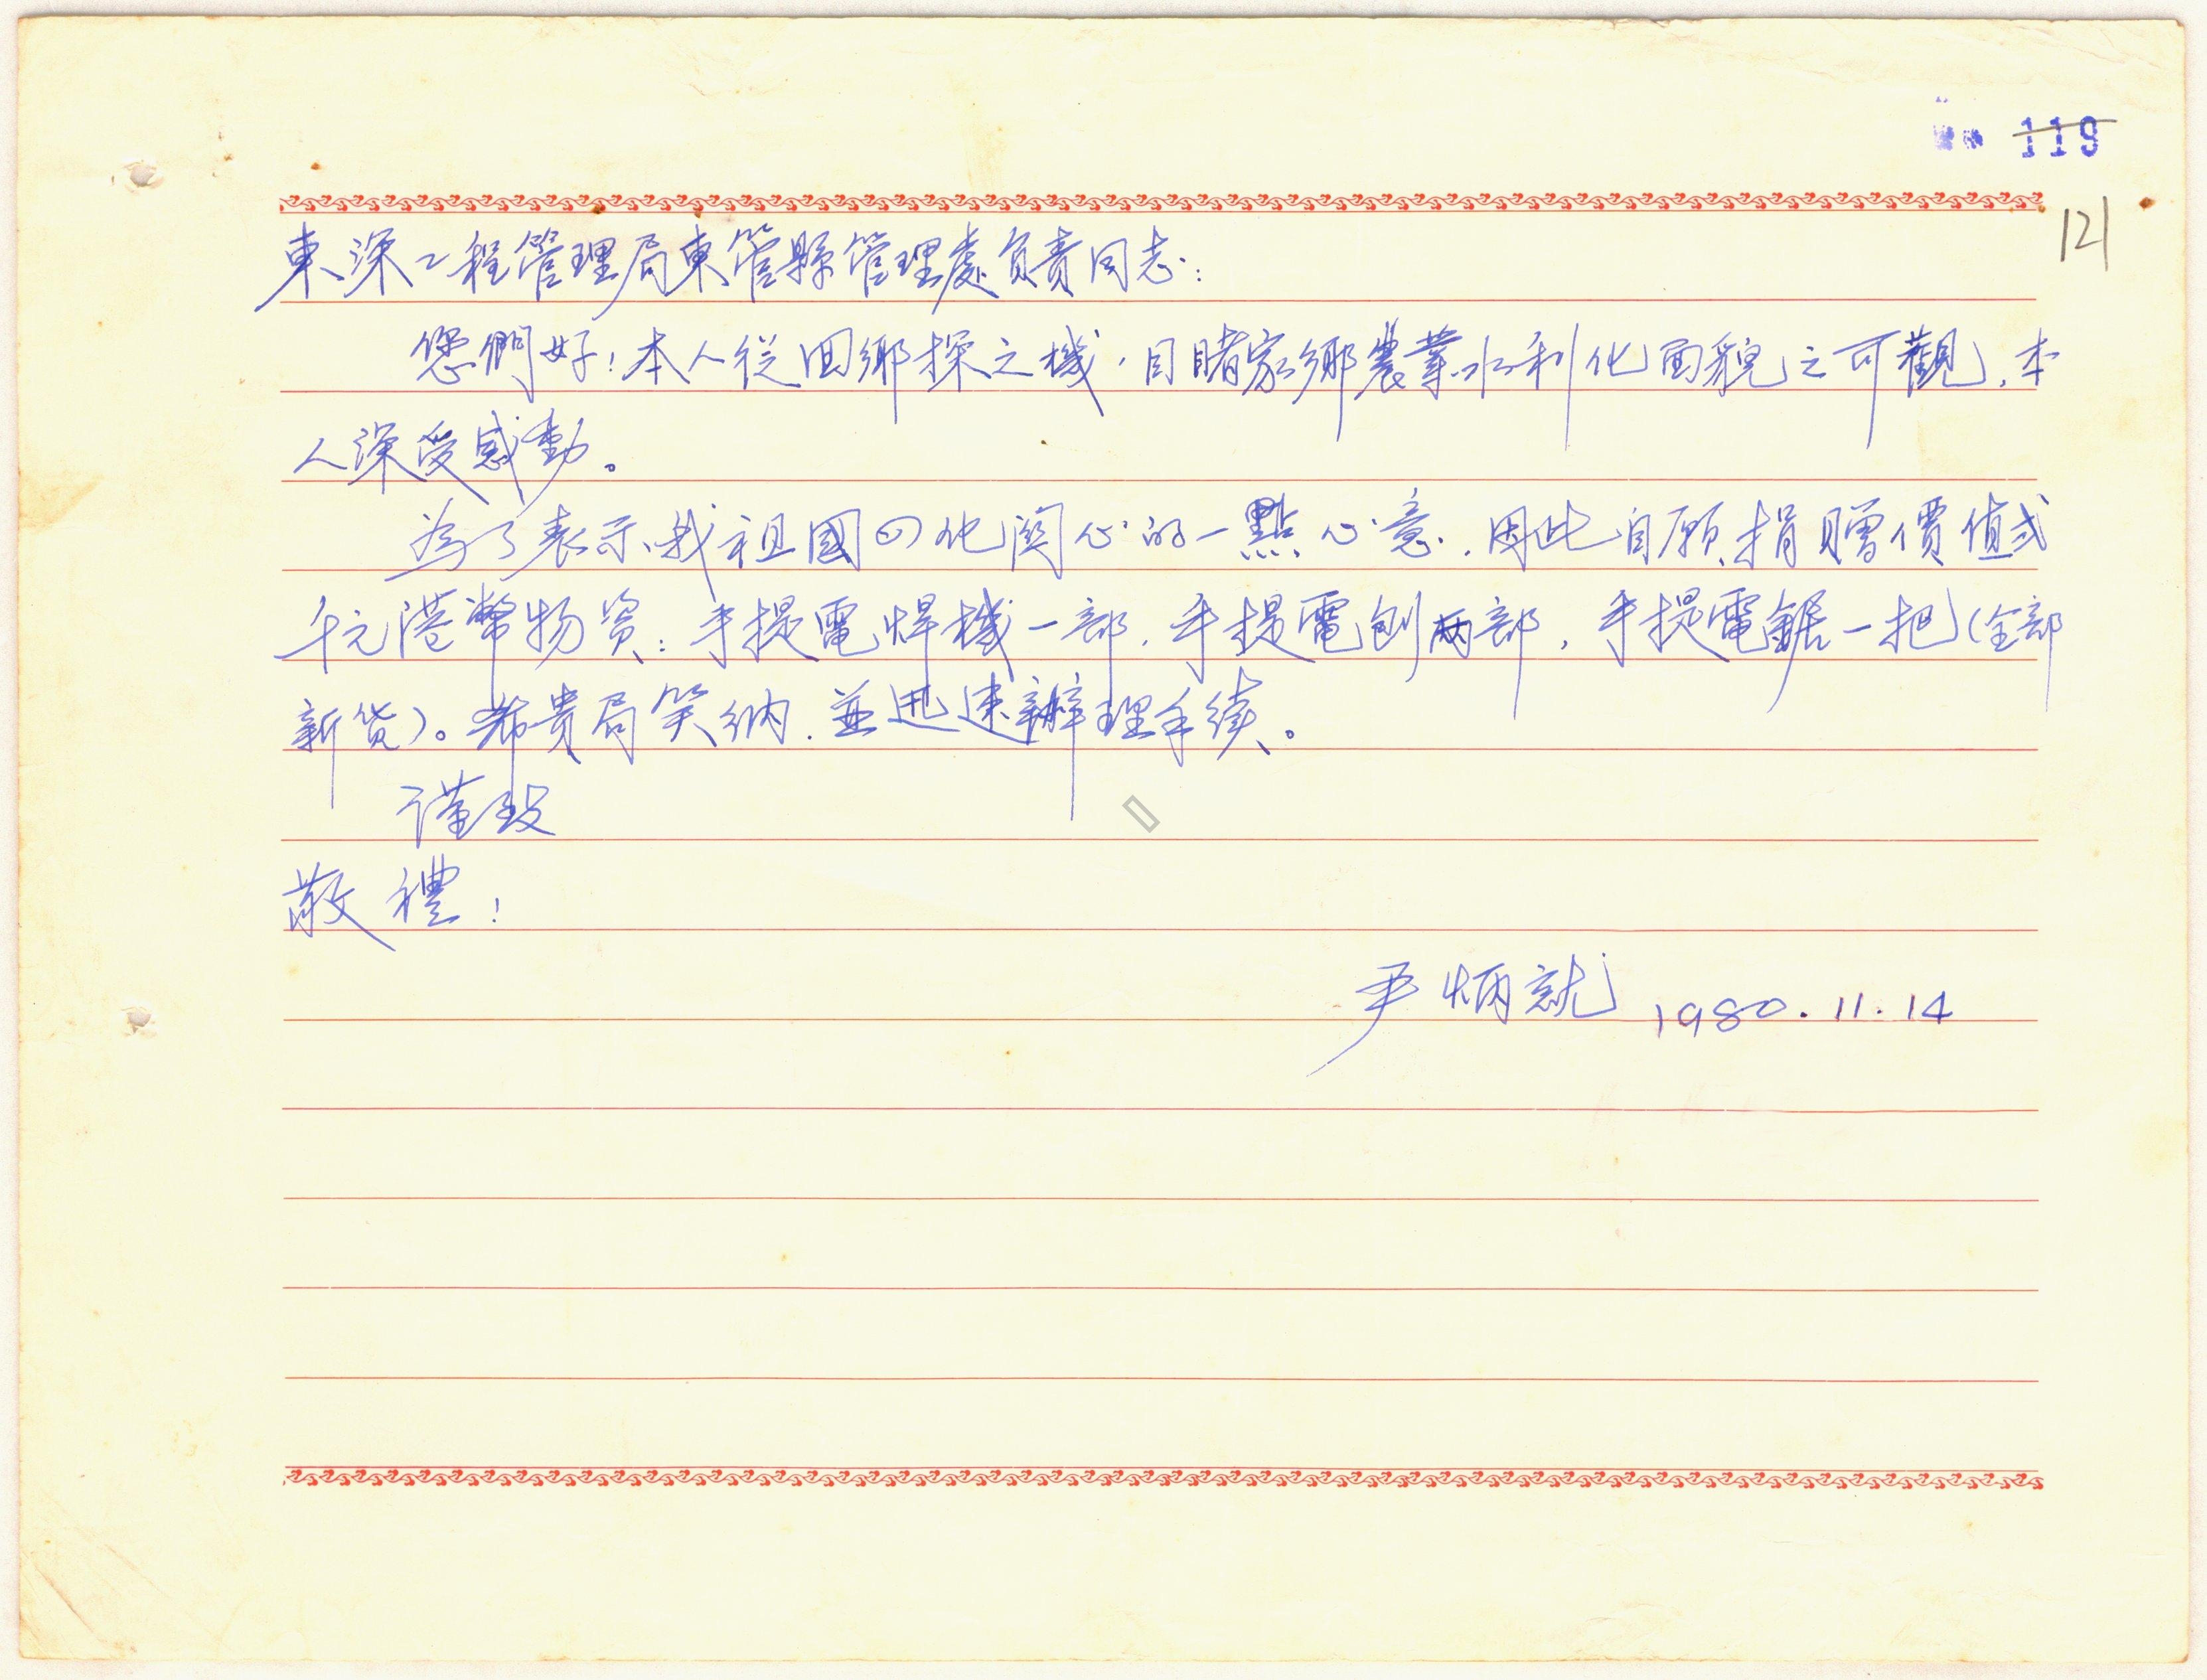 119
121
東深工程管理局東管縣管理處負責同志：
您們好！本人從回鄉探之機，目睹家鄉農業水利化面貌之可觀，本
人深受感動。
為了表示我祖國四化関心的一點心意，因此自願捐贈價值弍
千元港幣物资：手提電焊機一部，手提電刨两部，手提電鋸一把（全部
新货）。希貴局笑納，並迅速辦理手續。
谨致
敬禮！
尹炳就 1980.11.14